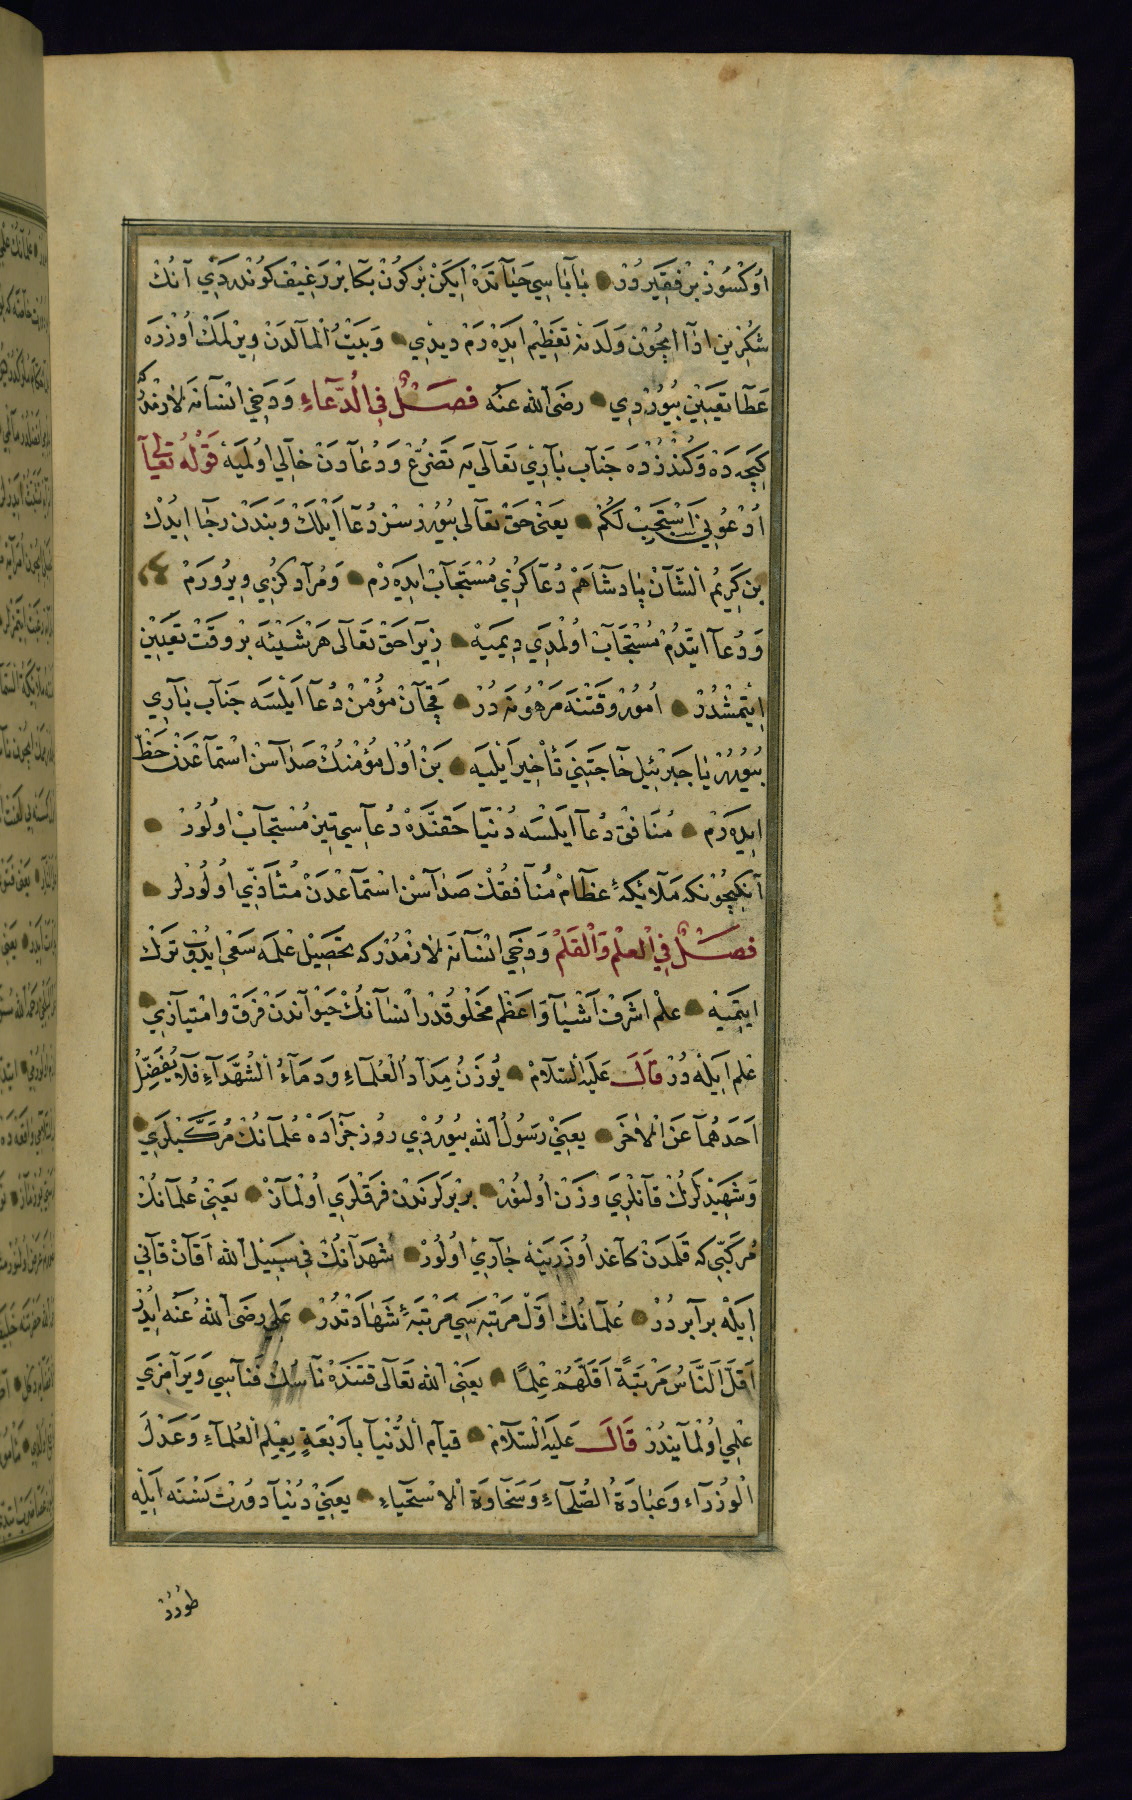 اوكسوز بر فقيردر باباسى حياتده ايكن بر كون بكا بر رغيف كوندردى آنك
شكرين ادا ايچون ولدينه تعظيم ايده رم ديدى وبيت المالدن ويرلمك اوزره
عطا تعيين بيوردى رضى الله عنه فصل فى الدعاء ودخى انسانه لازمدركه
كيجه ده وكندزده جناب بارى تعالى يه تضرع ودعادن خالى اولميه قوله تعالى
ادعونى استجب لكم يعنى حق تعالى بيورر سز دعا ايلك وبندن رجا ايدك
بن كريم الشان پادشاهم دعاكزى مستجاب ايده رم ومرادكزى ويرورم
ودعا ايتدم مستجاب اولمدى ديميه زيرا حق تعالى هر شيئه بر وقت تعيين
ايتمشدر امور وقتنه مرهونه در قچان مؤمن دعا ايلسه جناب بارى
بيورر يا جبرئيل حاجتنى تأخير ايليه بن اول مؤمنك صداسن استماعدن حظ
ايده رم منافق دعا ايلسه دنيا حقنده دعاسى تيز مستجاب اولور
آنكچونكه ملائكۀ عظام منافقك صداسن استماعدن متأذى اولورلر
فصل فى العلم والقلم ودخى انسانه لازمدركه تحصيل علمه سعى ايدوب ترك
ايتميه علم اشرف اشيا واعظم مخلوقدر انسانك حيواندن فرق وامتيازى
علم ايله در قال عليه السلام يوزن مداد العلماء ودماء الشهداء فلا يفضل
احدهما عن الاخر يعنى رسول الله بيوردى روز جزاده علمانك مركبلرى
وشهيدلرك قانلرى وزن اولنور بر برلرندن فرقلرى اولماز يعنى علمانك
مركبى كه قلمدن كاغد اوزرينه جارى اولور شهدانك فى سبيل الله اقان قانى
ايله برابردر علمانك اول مرتبه سى مرتبۀ شهادتدر على رضى الله عنه ايدر
اقل الناس مرتبة اقلهم علما يعنى الله تعالى قتنده ناسك فناسى ويرامزى
علمى اولمايندر قال عليه السلام قيام الدنيا باربعة بعلم العلماء وعدل
الوزراء وعبادة الصلحاء وسخاوة الاسخياء يعنى دنيا دورت نسنه ايله
طورر